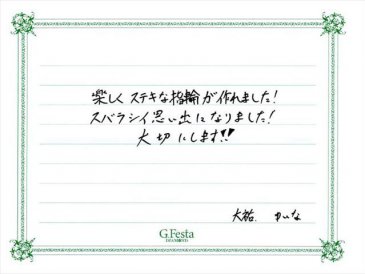 楽しくステキな指輪が作れました!
スバラシイ思い出になりました!
大切にします!!
大祐. ゆいな
G.Festa
DIAMOND